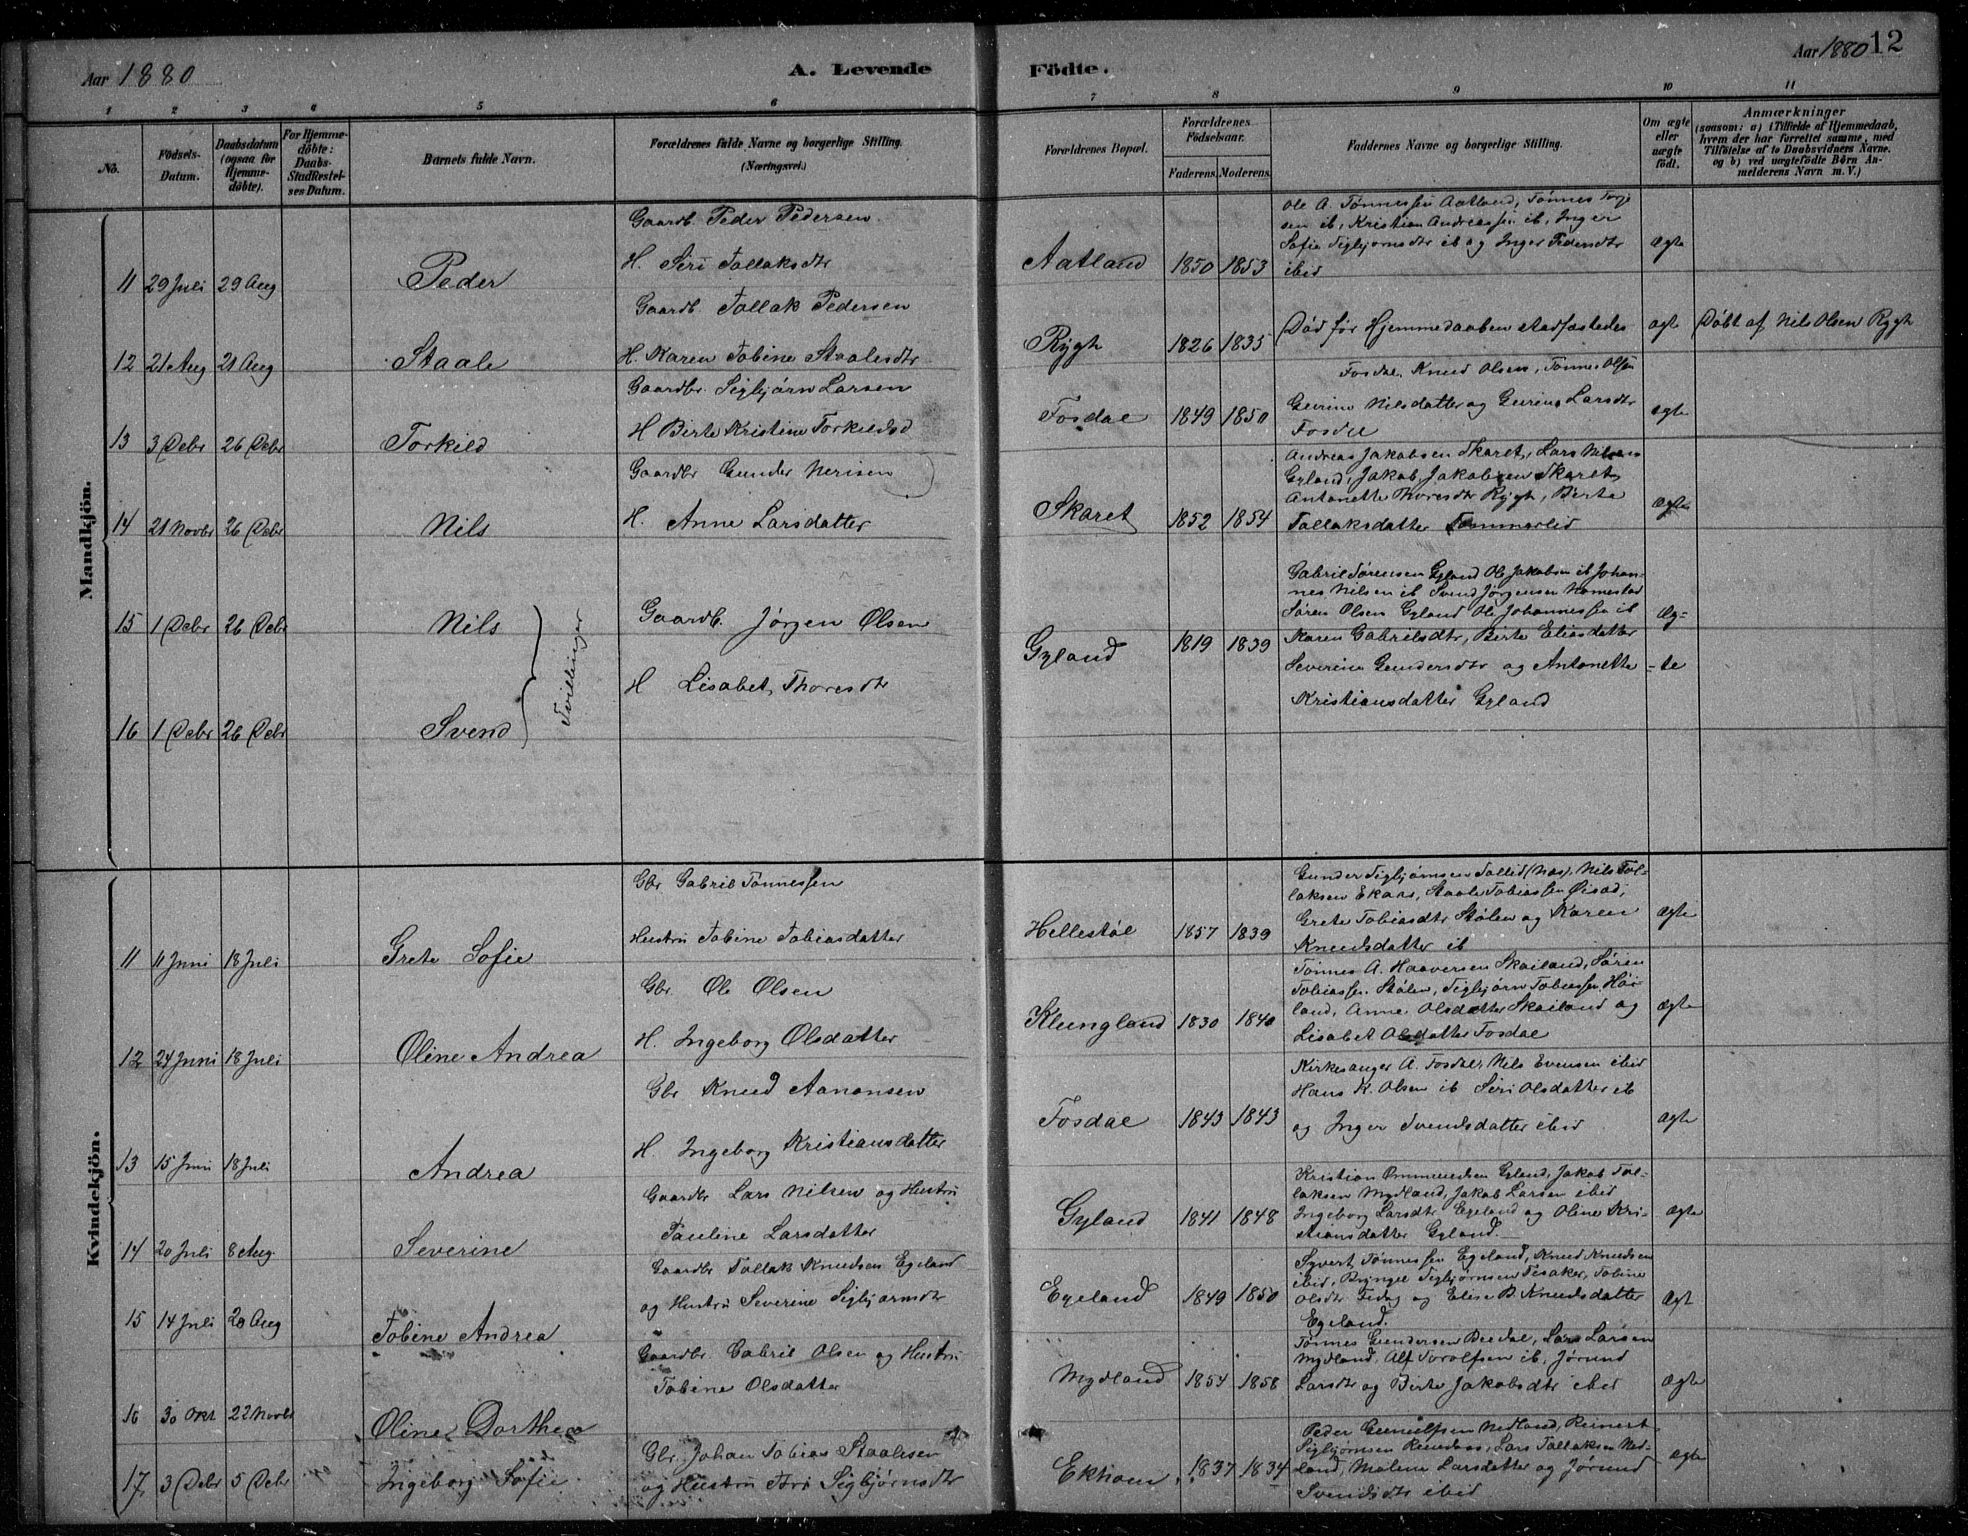 Aar 1880
A. Levende Födte.
Aar 1880 12
1 2 3 4 5 6 7 8 9 10 11
No.
Födsels-Datum.
Daabsdatum (ogsaa for Hjemme-döbte).
For Hjemme-döbte: Daabs-Stadfæstel-ses-Datum.
Barnets fulde Navn.
Forældrenes fulde Navne og borgerlige Stilling. (Næringsvei.)
Forældrenes Bopæl.
Forældrenes Födselsaar.
Faderens. Moderens.
Faddernes Navne og borgerlige Stilling.
Om ægte eller uægte födt.
Anmærkninger
(saasom: a) i Tilfælde af Hjemmedaab, hvem der har forrettet samme, med Tilföielse af to Daabsvidners Navne. og b) ved uægtefödte Börn An-melderens Navn m. V.)
Mandkjön.
11 29 Juli 29 Aug Peder
Gaardb. Peder Pedersen
H. Siri Tallaksdtr
Aatland 1850 1853
Ole A. Tønnessen Aatland, Tønnes Torje
sen ib, Kristian Andreassen ib, Inger
Sofie Sigbjørnsdtr ib og Inger Pedersdtr
ibid
Ægte
12 21 Aug 21 Aug Staale
Gaardb. Tallak Pedersen
H. Karen Tobine Staalesdtr
Rygh 1826 1835
Død før Hjemmedaaben stadfæstedes
ægte
Døbt af Nils Olsen Rygh
13 3 Debr 26 Debr Torkild
Gaardbr. Sigbjørn Larsen
H Birte Kristine Torkildsd
Fosdal 1849 1850
Fosdal, Knud Olsen, Tønnes Olsen
Gurine Nilsdatter og Gurine Larsdtr
Fosdal
ægte
14 21 Novbr 26 Debr Nils
Gaardbr Gunder Nerisen
H. Anne Larsdatter
Skaret 1852 1854
Andreas Jakobsen Skaret, Lars Nilsen
Gyland, Jakob Jakobsen Skaret,
Antonette Thoresdtr Rygh, Birte
Tallaksdatter Tømmerlid
Ægte
15 1 Debr 26 Debr Nils
Tvillinger
Gaardb. Jørgen Olsen
H Lisabet Thoresdtr
Gyland 1819 1839
Gabriel Sørensen Gyland Ole Jakobsen ib Johan-
nes Nilsen ib Svend Jørgensen Homestad
Søren Olsen Gyland Ole Johannessen ib
Karen Gabrielsdtr, Birte Eliasdatter
Severine Gundersdtr og Antonette
Kristiansdatter Gyland
Æg-
-te
16 1 Debr 26 Debr Svend
Kvindekjön.
11 11 Juni 18 Juli Grete Sofie
Gbr Gabriel Tønnessen
Hustru Tobine Tobiasdatter
Hellestøl 1857 1839
Gunder Sigbjørnsen Sollid (Næs), Nils Tol-
laksen Ekaas, Staale Tobiassen Øisæd,
Grete Tobiasdtr Stølen og Karen
Knudsdatter ib
Ægte
12 24 Juni 18 Juli Oline Andrea
Gbr. Ole Olsen
H. Ingeborg Olsdatter
Klungland 1830 1840
Tønnes A. Haaversen Skailand, Søren
Tobiassen Stølen, Sigbjørn Tobiassen Høi-
land, Anne Olsdatter Skailand og
Lisabet Olsdatter Fosdal
Ægte
13 15 Juni 18 Juli Andrea
Gbr Knud Aanonsen
H. Ingeborg Kristiansdatter
Fosdal 1843 1843
Kirkesanger A. Fosdal, Nils Evensen ibid
Hans K. Olsen ib Siri Olsdatter ib
og Inger Svendsdatter ibid
Ægte
14 20 Juli 8 Aug Severine
Gaardbr Lars Nilsen og Hustru
Pauline Larsdatter
Gyland 1841 1848
Kristian Ommundsen Gyland, Jakob Tol-
laksen Mydland, Jakob Larsen ibid
Ingeborg Larsdtr Egeland og Oline Kri-
stiansdatter Gyland.
Ægte
15 14 Juli 20 Aug Tobine Andrea
Gaardbr Tallak Knudsen Egeland
og Hustru Severine Sigbjørnsdtr
Egeland 1849 1850
Syvert Tønnessen Egeland, Knud Knudsen
ibid, Bringel Sigbjørnsen Fisaker, Tobine
Olsdtr og Elise B. Knudsdatter
Egeland.
Ægt
16 30 Okt 22 Novbr Oline Dorthea
Gaardbr. Gabriel Olsen og Hustru
Tobine Olsdatter
Mydland 1854 1858
Tønnes Gundersen Bredal, Lars Larsen
Mydland, Alf Torolfsen ib, Jørund
Larsdtr og Birte Jakobsdtr ibid
Ægte
17. 3 Debr 5 Debr Ingeborg Sofie
Gbr. Johan Tobias Staalesen
og Hustru Siri Sigbjørnsdtr
Ekhom 1837 1834
Peder Gunulfsen Nedland, Reinert
Sigbjørnsen, Lars Tallaksen Ned-
land, Malene Larsdatter og Jørund
Svendsdtr ibid
ægte